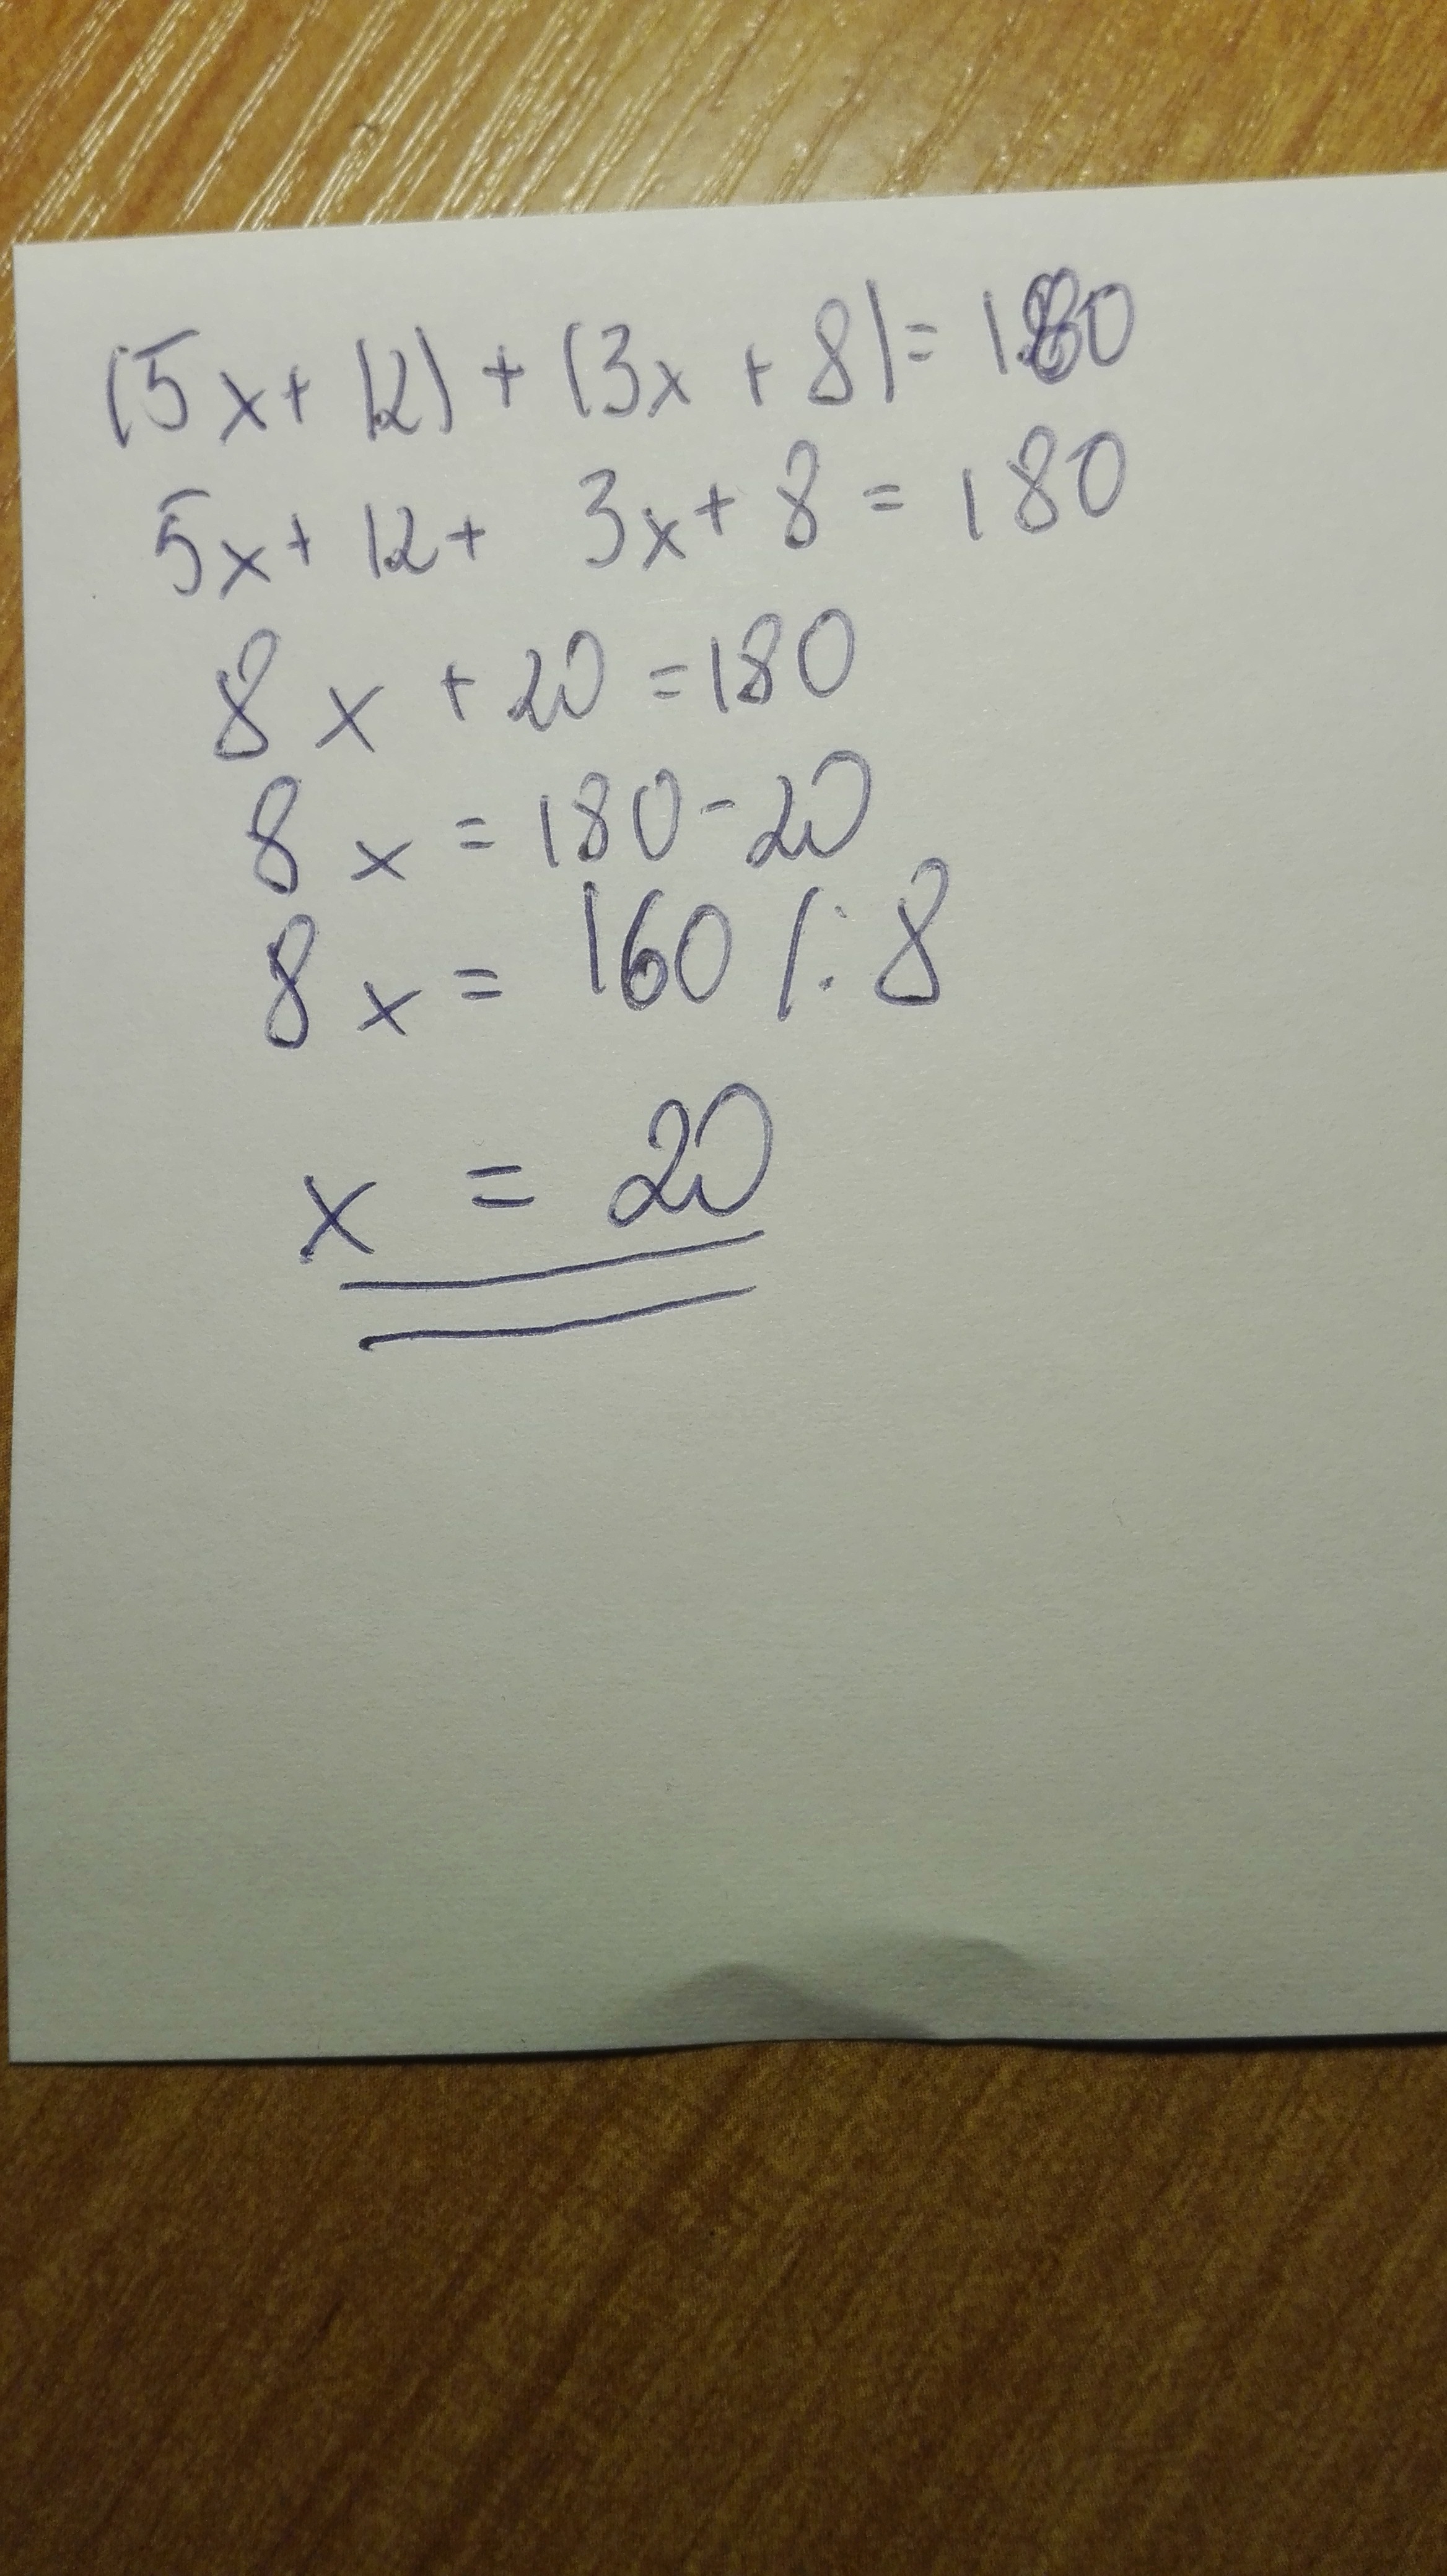 (5x + 12) + (3x + 8) = 180
5x + 12 + 3x + 8 = 180
8x + 20 = 180
8x = 180 - 20
8x = 160 / : 8
x = 20